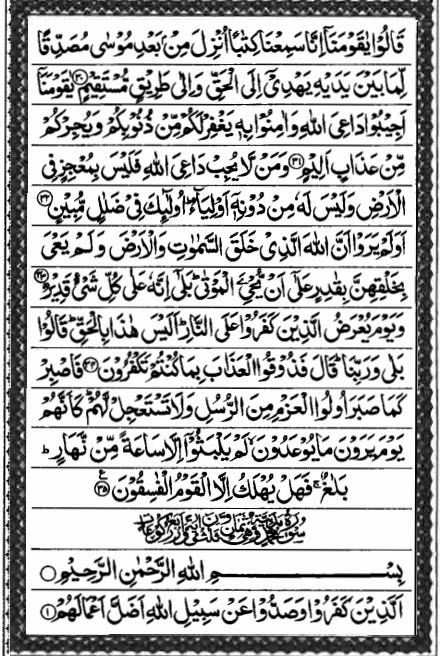 قَالُوْا يٰقَوْمَنَاۤ اِنَّا سَمِعْنَا كِتٰبًا اُنْزِلَ مِنْۢ بَعْدِ مُوْسٰى مُصَدِّقًا
لِّمَا بَيْنَ يَدَيْهِ يَهْدِيْۤ اِلَى الْحَقِّ وَاِلٰى طَرِيْقٍ مُّسْتَقِيْمٍ ۝۳۰ يٰقَوْمَنَاۤ
اَجِيْبُوْا دَاعِيَ اللّٰهِ وَاٰمِنُوْا بِهٖ يَغْفِرْ لَكُمْ مِّنْ ذُنُوْبِكُمْ وَيُجِرْكُمْ
مِّنْ عَذَابٍ اَلِيْمٍ ۝۳۱ وَمَنْ لَّا يُجِبْ دَاعِيَ اللّٰهِ فَلَيْسَ بِمُعْجِزٍ فِي
الْاَرْضِ وَلَيْسَ لَهٗ مِنْ دُوْنِهٖۤ اَوْلِيَآءُ ؕ اُولٰٓئِكَ فِيْ ضَلٰلٍ مُّبِيْنٍ ۝۳۲
اَوَلَمْ يَرَوْا اَنَّ اللّٰهَ الَّذِيْ خَلَقَ السَّمٰوٰتِ وَالْاَرْضَ وَلَمْ يَعْيَ
بِخَلْقِهِنَّ بِقٰدِرٍ عَلٰۤى اَنْ يُّحْيِۦَ الْمَوْتٰى ؕ بَلٰۤى اِنَّهٗ عَلٰى كُلِّ شَيْءٍ قَدِيْرٌ ۝۳۳
وَيَوْمَ يُعْرَضُ الَّذِيْنَ كَفَرُوْا عَلَى النَّارِ ؕ اَلَيْسَ هٰذَا بِالْحَقِّ ؕ قَالُوْا
بَلٰى وَرَبِّنَا ؕ قَالَ فَذُوْقُوا الْعَذَابَ بِمَا كُنْتُمْ تَكْفُرُوْنَ ۝۳۴ فَاصْبِرْ
كَمَا صَبَرَ اُولُوا الْعَزْمِ مِنَ الرُّسُلِ وَلَا تَسْتَعْجِلْ لَّهُمْ ؕ كَاَنَّهُمْ
يَوْمَ يَرَوْنَ مَا يُوْعَدُوْنَ ۙ لَمْ يَلْبَثُوْۤا اِلَّا سَاعَةً مِّنْ نَّهَارٍ ؕ
بَلٰغٌ ۚ فَهَلْ يُهْلَكُ اِلَّا الْقَوْمُ الْفٰسِقُوْنَ ۝۳۵ ع
بِسْمِ اللّٰهِ الرَّحْمٰنِ الرَّحِيْمِ ۝
اَلَّذِيْنَ كَفَرُوْا وَصَدُّوْا عَنْ سَبِيْلِ اللّٰهِ اَضَلَّ اَعْمَالَهُمْ ۝۱